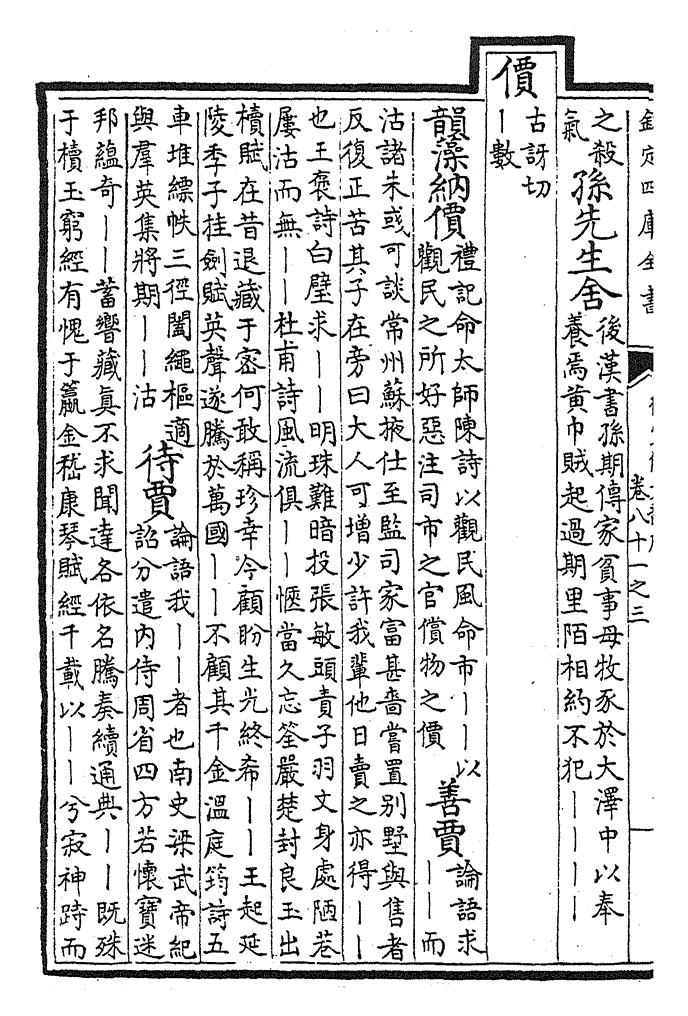 欽定四庫全書
卷八十一之三
之殺
氣
孫先生舍
後漢書孫期傳家貧事母牧豕於大澤中以奉
養焉黄巾賊起過期里陌相約不犯丨丨丨丨
價
古訝切
丨數
韻藻納價
禮記命太師陳詩以觀民風命市丨丨以
觀民之所好惡注司市之官償物之價
善賈
論語求
丨丨而
沽諸朱彧可談常州蘇掖仕至監司家富甚嗇嘗置别墅與售者
反復正苦其子在旁曰大人可增少許我輩他日賣之亦得丨丨
也王褒詩白璧求丨丨明珠難暗投張敏頭責子羽文身處陋巷
屢沽而無丨丨杜甫詩風流俱丨丨愜當久忘筌嚴楚封良玉出
櫝賦在昔退藏于密何敢稱珍幸今顧盼生光終希丨丨王起延
陵季子挂劍賦英聲遂騰於萬國丨丨不顧其千金溫庭筠詩五
車堆縹帙三徑闔繩樞適
與羣英集將期丨丨沽
待賈
論語我丨丨者也南史梁武帝紀
詔分遣内侍周省四方若懷寶迷
邦藴奇丨丨蓄響藏真不求聞達各依名騰奏續通典丨丨既殊
于櫝玉窮經有愧于籯金嵇康琴賦經千載以丨丨兮寂神跱而